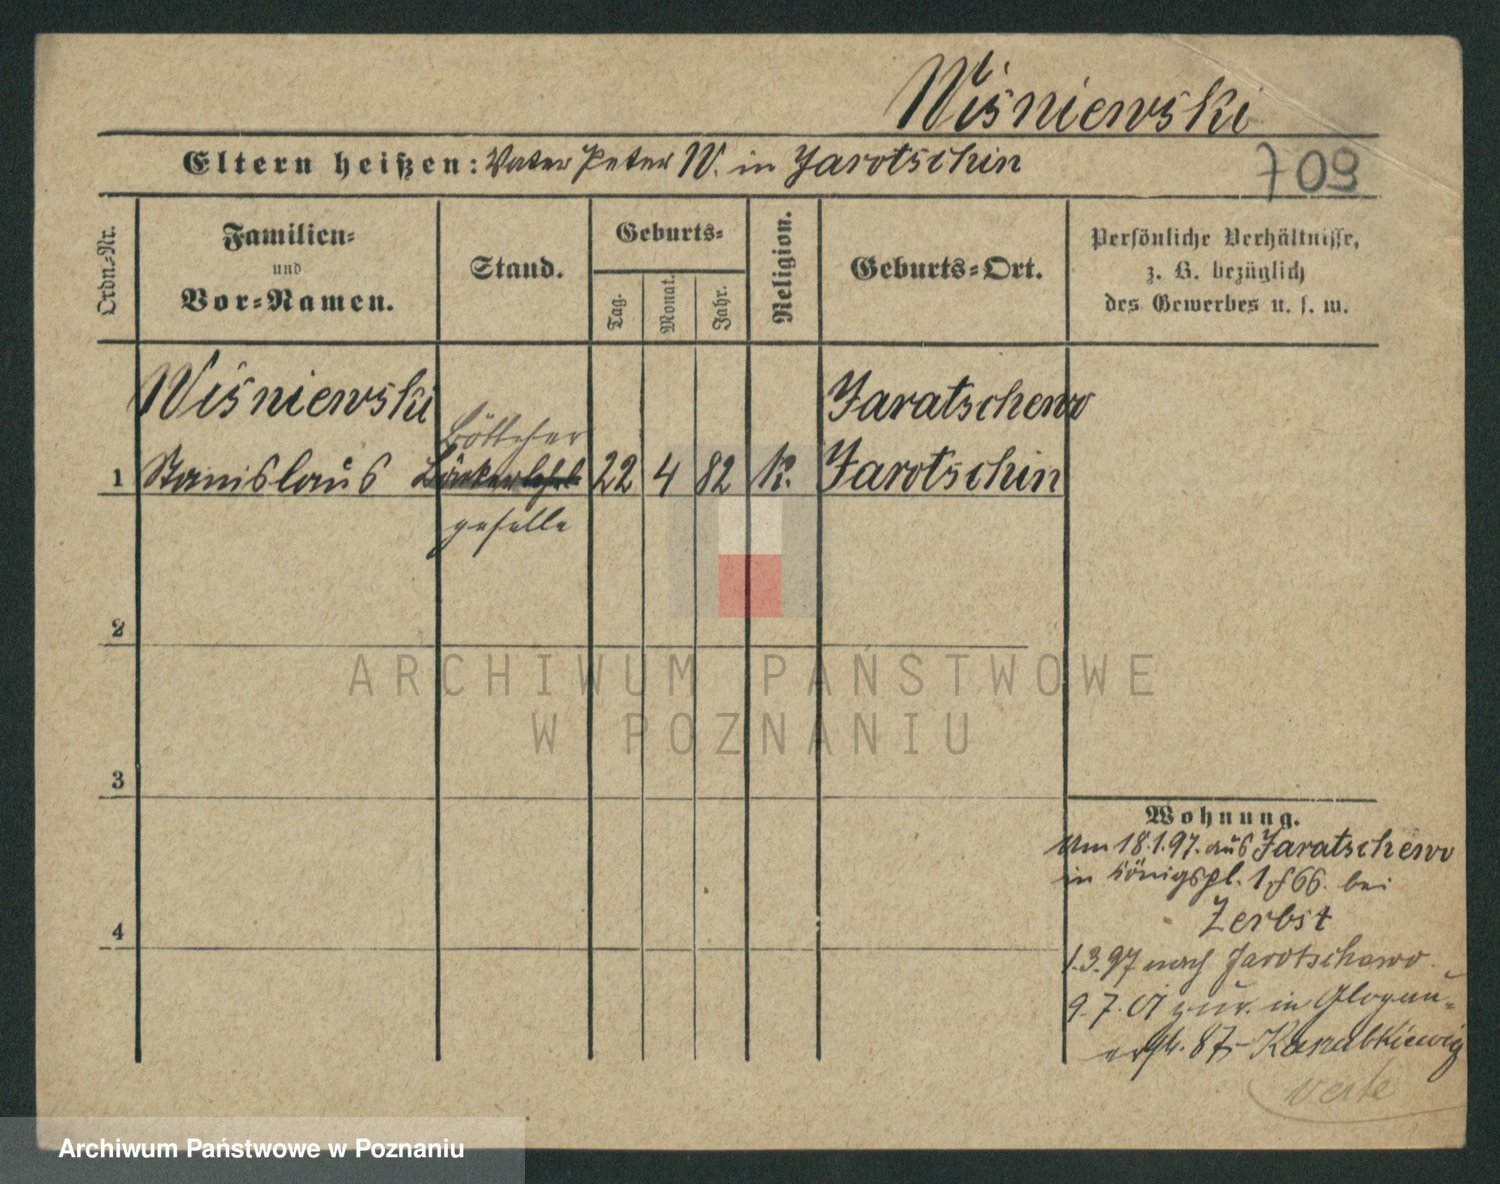 Wiśniewski
Eltern heißen: Vater Peter W. in Jarotschin
709
Ordn.-Nr.
Familien-
und
Vor-Namen.
Stand.
Geburts-
Tag.
Monat.
Jahr.
Religion.
Geburts-Ort.
Persönliche Verhältnisse,
z. B. bezüglich
des Gewerbes u. s. w.
Wiśniewski
Jaratschewo
Böttcher
1 Stanislaus 22 4 82 k. Jarotschin
geselle
2
3
4
Wohnung.
Um 18.1.97. aus Jaratschewo
in Königspl. 1 bei
Zerbst
1.3.97 nach Jarotschewo
9.7.01 zur. in Glogau-
erstr. 87
verte
ARCHIWUM PAŃSTWOWE
W POZNANIU
Archiwum Państwowe w Poznaniu